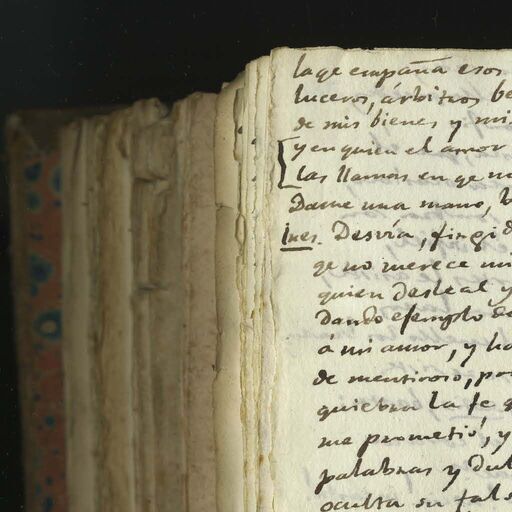 la qe empaña esos
luceros, árbitros be
de mis bienes y mis
y en quien el amor
las llamas en qe m
Dame una mano, b
Ines. Desvía, fingid
qe no merece mi
quien desleal y
Dando efemplo de
á mi amor, y ha
de mentiroso, por
quiebra la fe q
me prometió, y
palabras y dul
oculta su fals